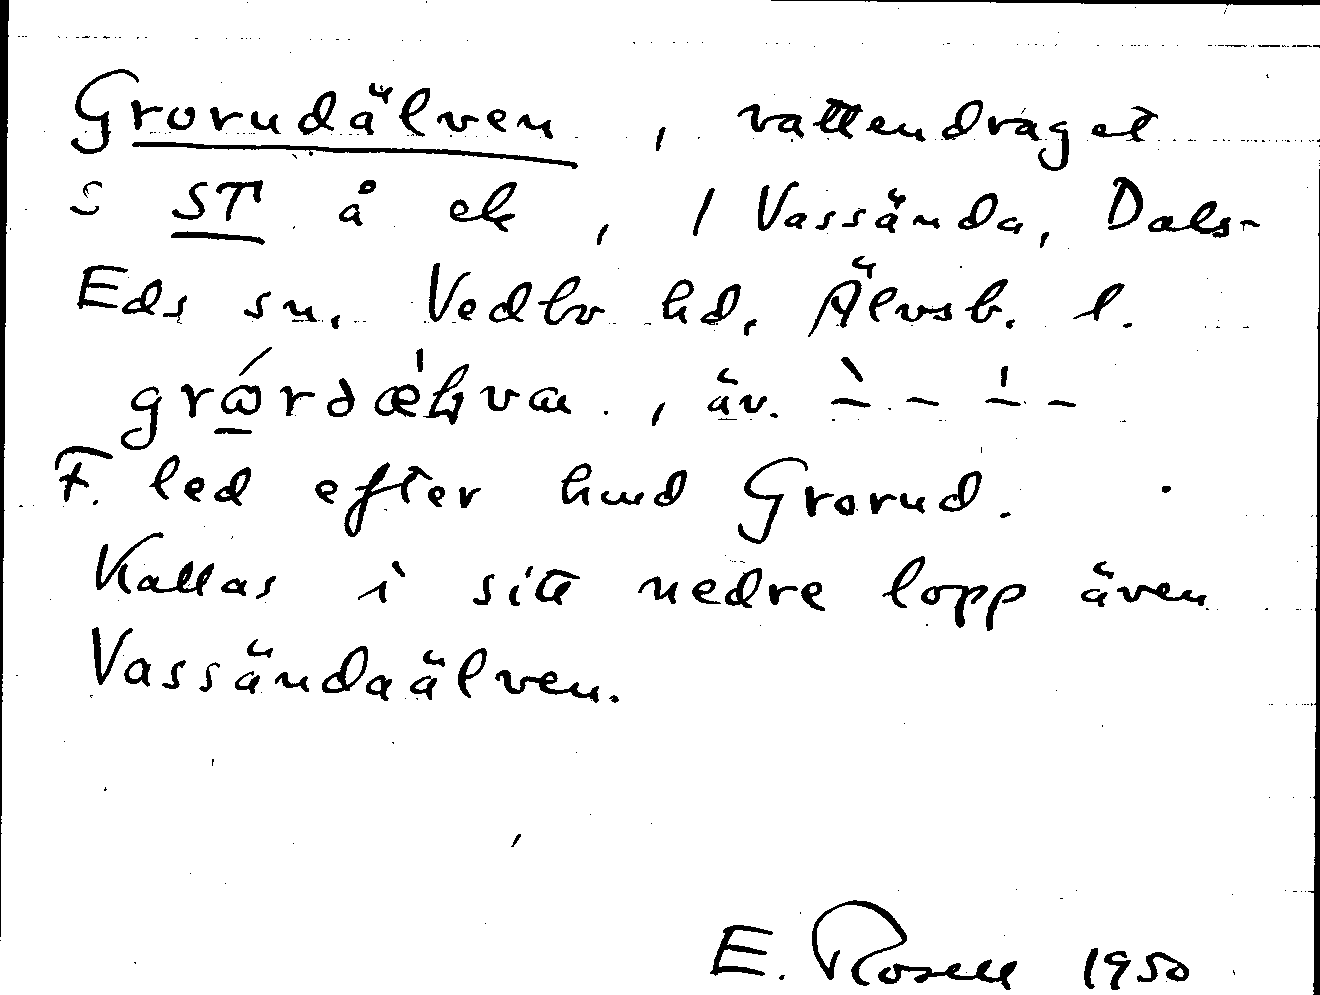 Grorudälven, vattendraget
s ST å ek, 1 Vassända, Dals-
Eds sn, Vedbo hd, Älvsb. l.
, äv.
F. led efter hmd Grorud.
Kallas i sitt nedre lopp även
Vassändaälven.
E. Rosell 1950